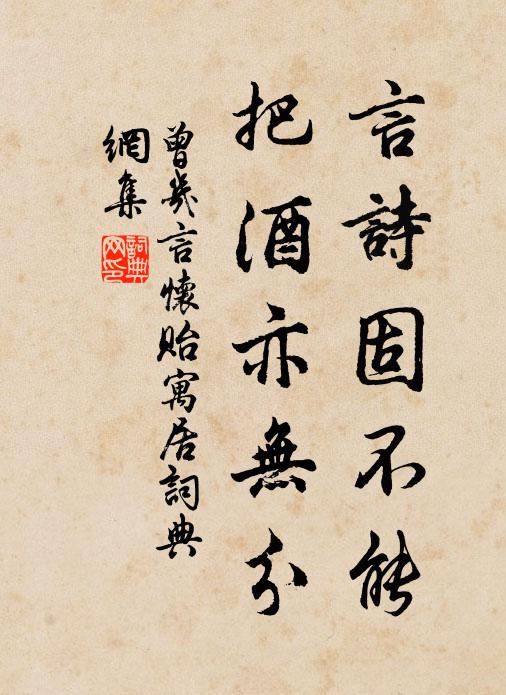 言詩固不能
把酒亦無分
曾幾言懷貽寓居詞典
網集
詞典
网印